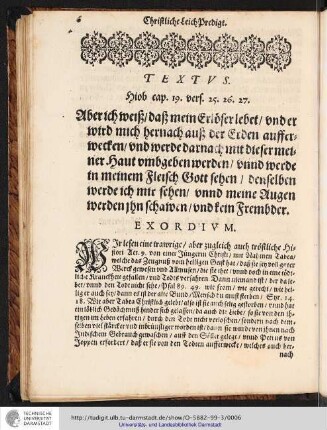 6
Christliche Leich Predigt.
TEXTVS.
Hiob cap. 19. vers. 25. 26. 27.
Aber ich weiß/daß mein Erlöser lebet/ vnd er
wird mich hernach auß der Erden auffer-
wecken/ vnd werde darnach mit dieser mei-
ner Haut vmbgeben werden/ vnnd werde
in meinem Fleisch Gott sehen/ denselben
werde ich mir sehen/ vnnd meine Augen
werden jhn schawen/ vnd kein Frembder.
EXORDIVM.
WIr lesen eine trawrige/ aber zugleich auch tröstliche Hi-
stori Act. 9. von einer Jüngerin Christi/ mit Nahmen Tabea/
welche das Zeugnuß vom heiligen Geist hat/ daß sie sey voll guter
Werck gewesen vnd Allmusen/ die sie thet/ vnnd doch in eine töd-
liche Kranckheit gefallen/ vnd Todes verfahren. Dann niemand ist/ der da le-
bet/ vnnd den Tod nicht sehe/ Psal. 89. 49. wie from/ wie gerecht/ wie hei-
lig er auch sey/ dann es ist der alte Bund/ Mensch du must sterben/ Syr. 14.
18. Wie aber Tabea Christlich gelebt/ also ist sie auch seelig gestorben/ vnnd hat
ein löblich Gedächtnuß hinder sich gelassen/ da auch die Liebe/ so sie von den jh-
rigen im Leben erfahren/ durch den Todt nicht verloschen/ sondern nach dem-
selben viel stärcker vnd inbrünstiger worden ist/ dann sie wurde von jhnen nach
Jüdischem Gebrauch gewaschen/ auff den Söller gelegt/ vnnd Petrus von
Joppen erfordert/ daß er sie von den Todten aufferwecke/ welches auch her-
nach
TECHNISCHE
UNIVERSITÄT
DARMSTADT
http://tudigit.ulb.tu-darmstadt.de/show/O-5882-99-3/0006
Universitäts- und Landesbibliothek Darmstadt